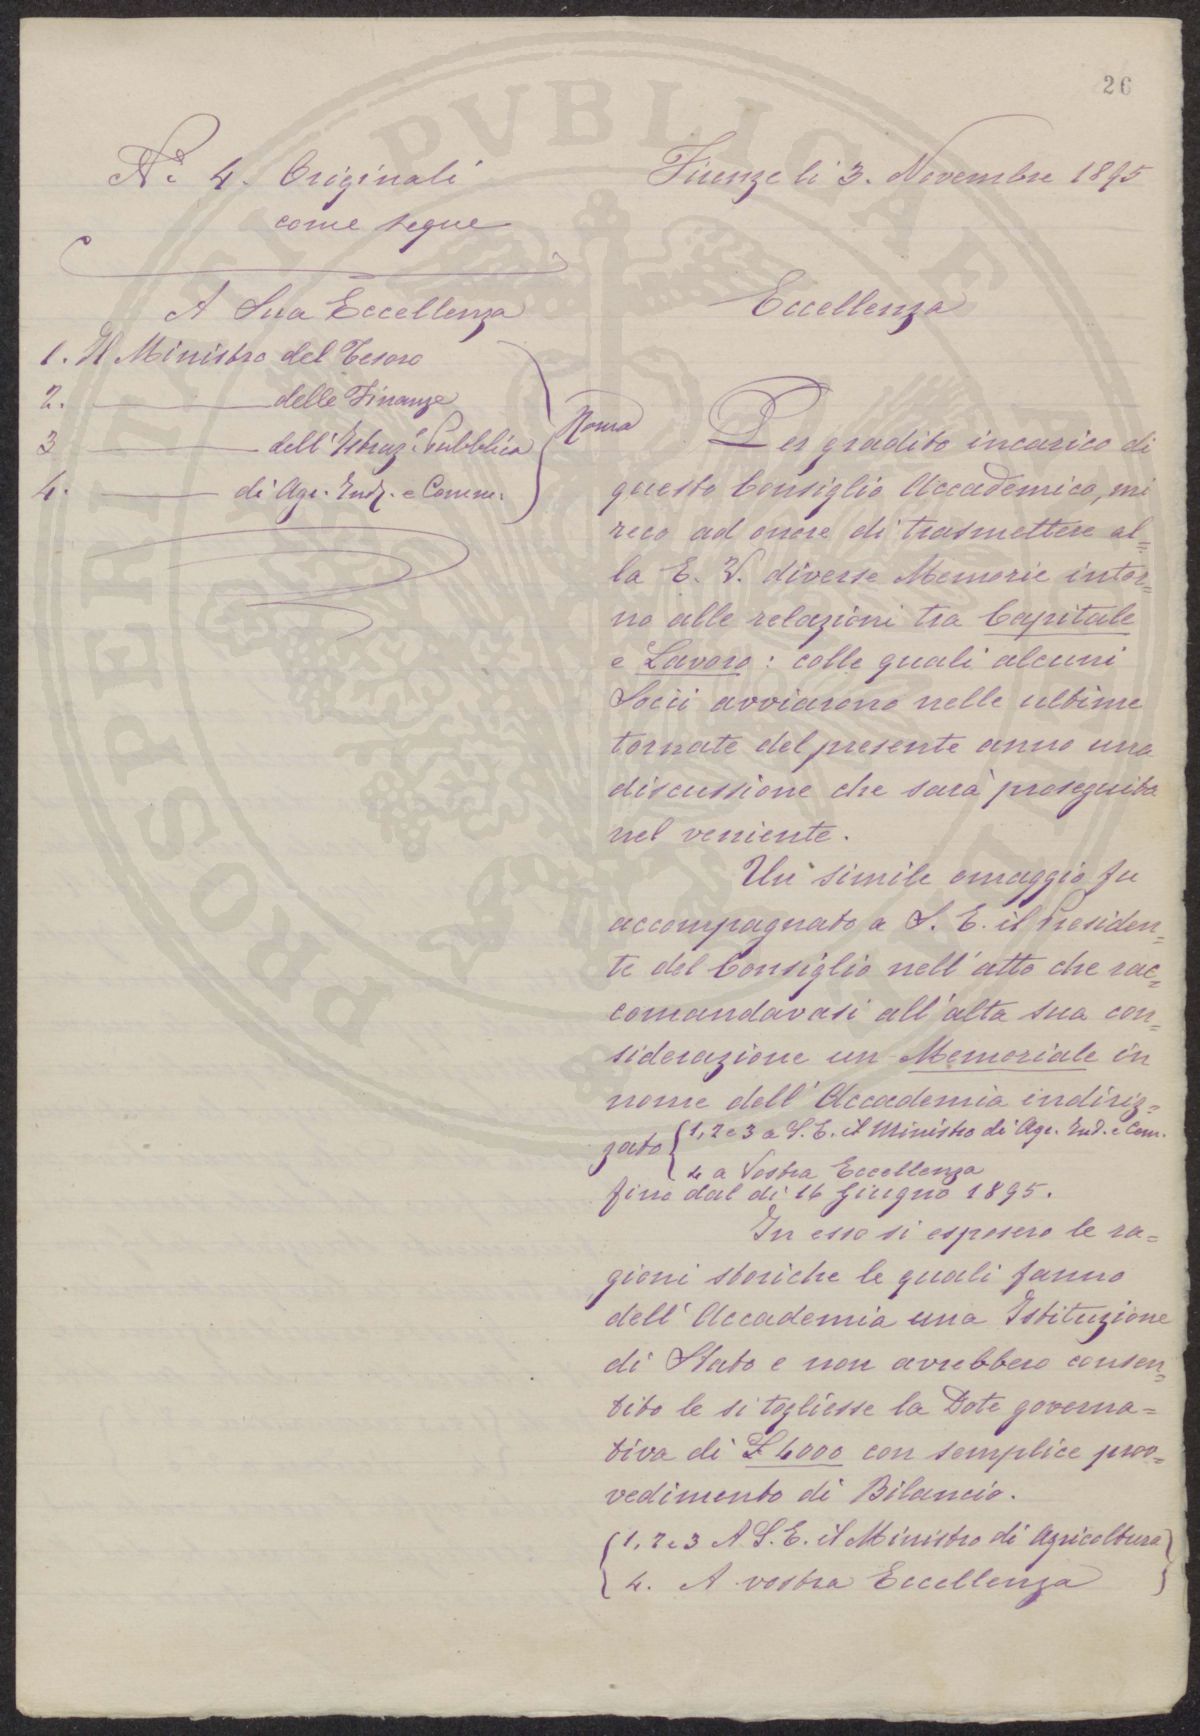 26
N.° 4. Originali
come segue
A Sua Eccellenza
1. Il Ministro del Tesoro
2. ——— delle Finanze
3 ——— dell'Istruz.e Pubblica
4. ——— di Agr. Ind. e Comm.
Roma
Firenze li 3. Novembre 1895
Eccellenza
Per gradito incarico di
questo Consiglio Accademico, mi
reco ad onore di trasmettere al=
la E. V. diverse Memorie intor=
no alle relazioni tra Capitale
e Lavoro: colle quali alcuni
Socii avviarono nelle ultime
tornate del presente anno una
discussione che sarà proseguita
nel veniente.
Un simile omaggio fu
accompagnato a S. E. il Presiden=
te del Consiglio nell'atto che rac=
comandavasi all'alta sua con=
siderazione un Memoriale in
nome dell'Accademia indiriz=
zato { 1, 2 e 3 a S. E. il Ministro di Agr. Ind. e Com.
4 a Vostra Eccellenza
fino dal dì 16 Giugno 1895.
In esso si esposero le ra=
gioni storiche le quali fanno
dell'Accademia una Istituzione
di Stato e non avrebbero consen=
tito le si togliesse la Dote governa=
tiva di £ 4000 con semplice prov=
vedimento di Bilancio.
{ 1, 2 e 3 A S. E. il Ministro di Agricoltura }
4. A vostra Eccellenza
PROSPERITATI PVBLICAE